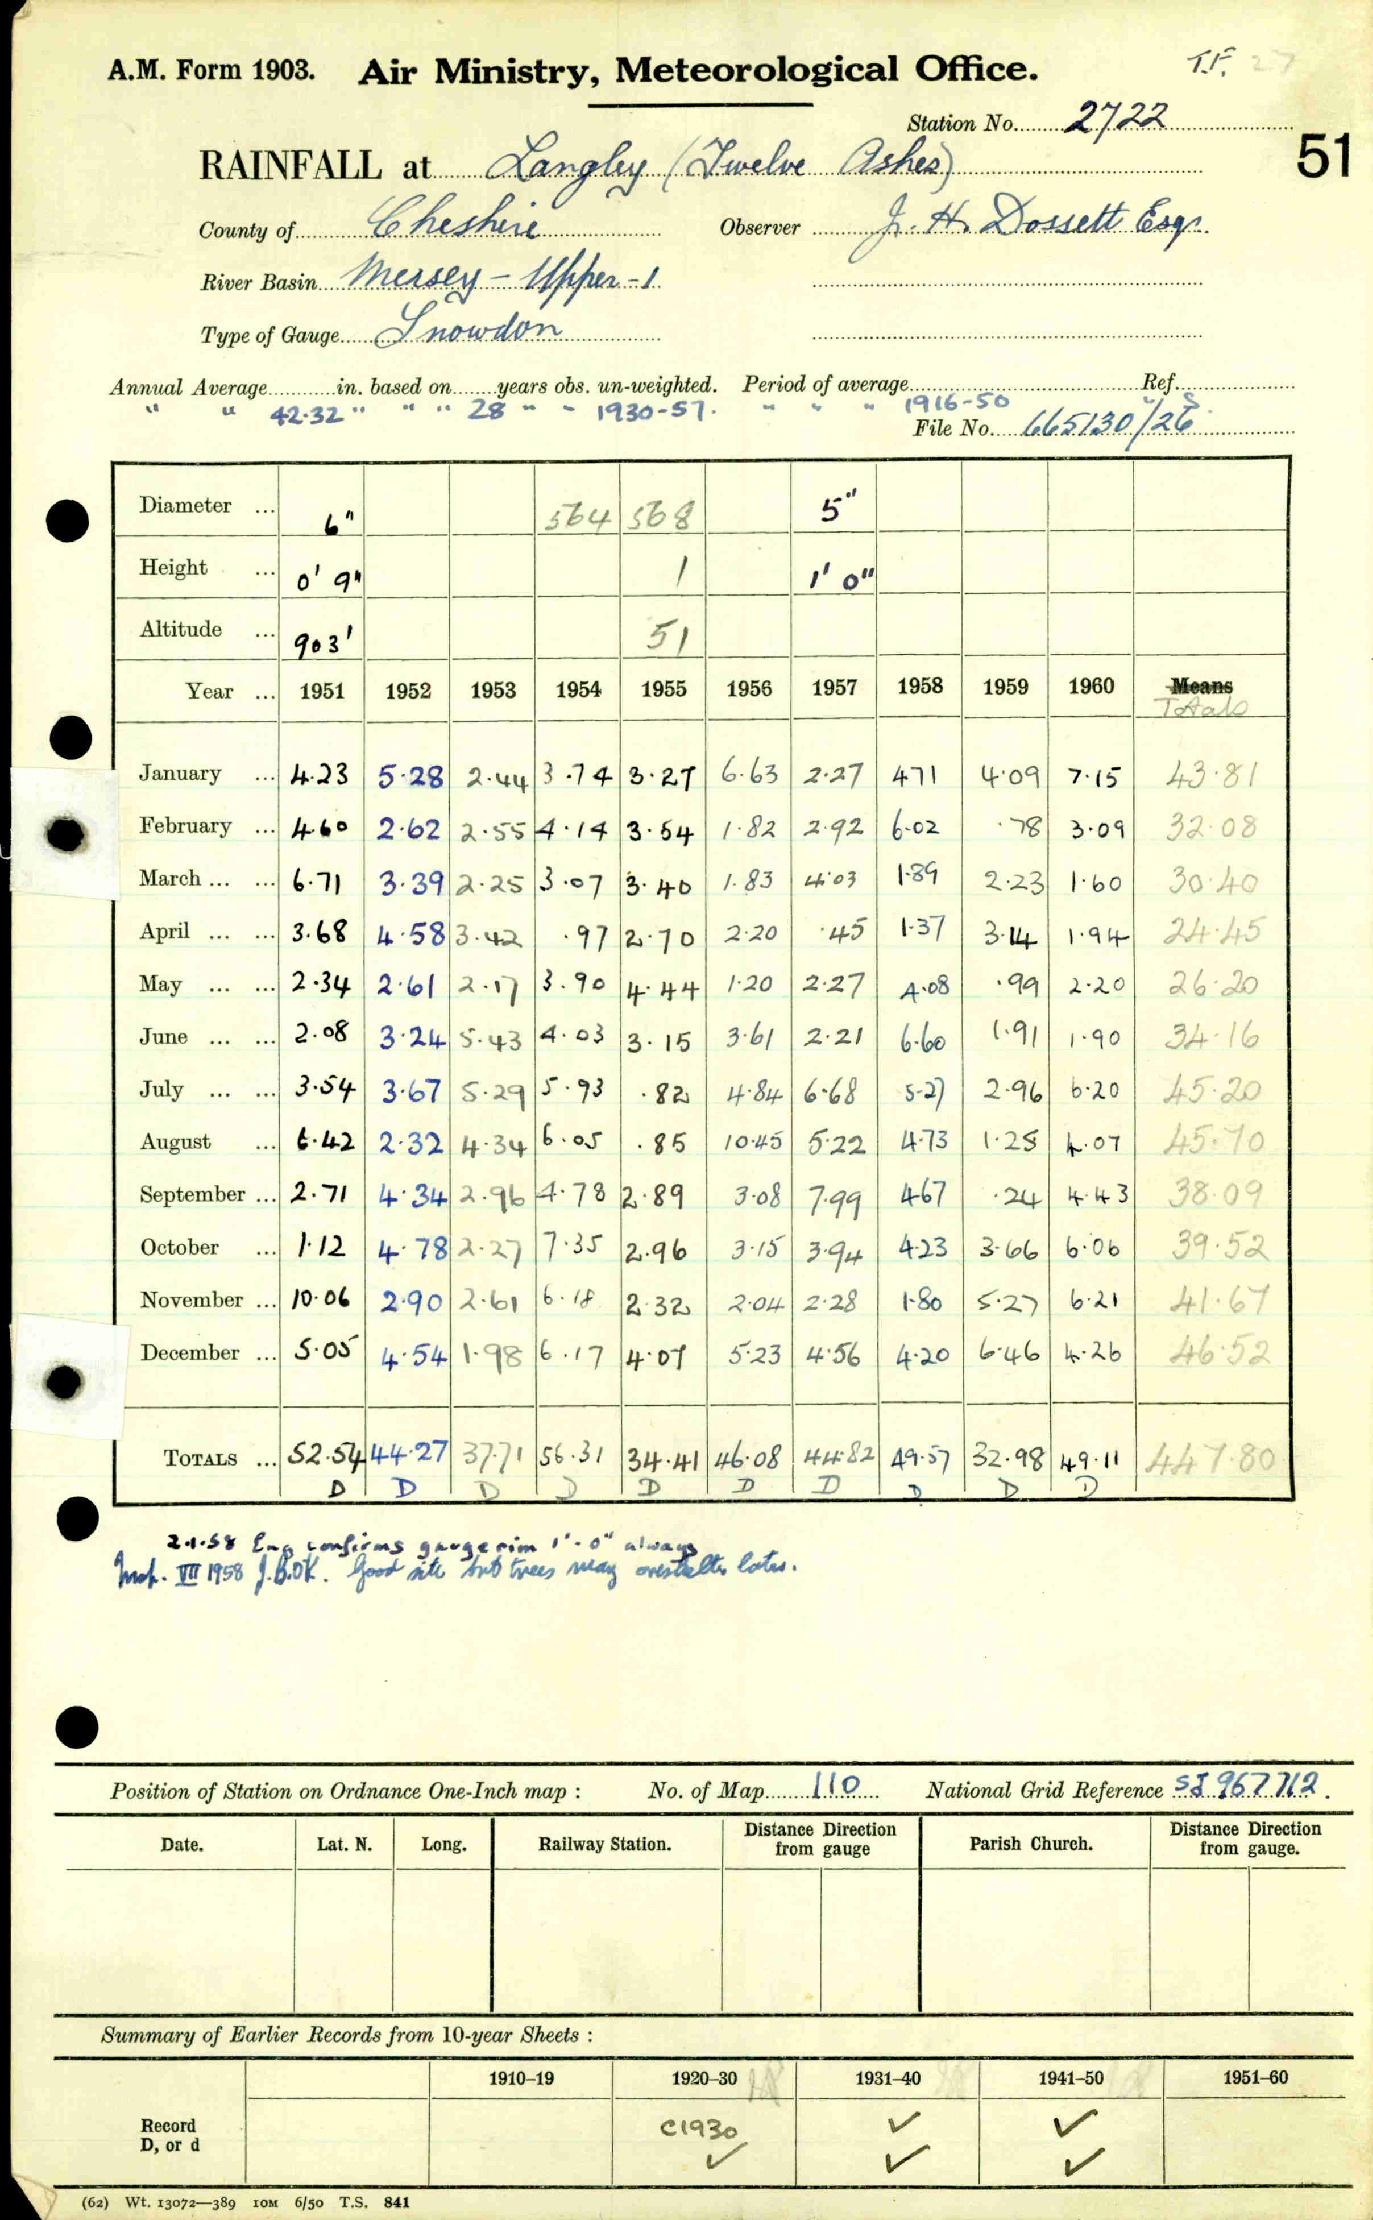 A.M. Form 1903. Air Ministry, Meteorological Office. T.F. 27
Station No. 2722
51
RAINFALL at Langley (Twelve Ashes)
County of Cheshire Observer J. H. Dossett Esqr.
River Basin Mersey - Upper - 1
Type of Gauge Snowdon
Annual Average in. based on years obs. un-weighted. Period of average Ref.
" " 42.32 " " " 28 " " 1930-57. " " " 1916-50 " S.
File No. 665130/26
Diameter ... 6" 564 568 5"
Height ... 0' 9" 1 1' 0"
Altitude ... 903' 51
Year ... 1951 1952 1953 1954 1955 1956 1957 1958 1959 1960 Means
Totals
January ... 4.23 5.28 2.44 3.74 3.27 6.63 2.27 4.71 4.09 7.15 43.81
February ... 4.60 2.62 2.55 4.14 3.54 1.82 2.92 6.02 .78 3.09 32.08
March ... ... 6.71 3.39 2.25 3.07 3.40 1.83 4.03 1.89 2.23 1.60 30.40
April ... ... 3.68 4.58 3.42 .97 2.70 2.20 .45 1.37 3.14 1.94 24.45
May ... ... 2.34 2.61 2.17 3.90 4.44 1.20 2.27 4.08 .99 2.20 26.20
June ... ... 2.08 3.24 5.43 4.03 3.15 3.61 2.21 6.60 1.91 1.90 34.16
July ... ... 3.54 3.67 5.29 5.93 .82 4.84 6.68 5.27 2.96 6.20 45.20
August ... 6.42 2.32 4.34 6.05 .85 10.45 5.22 4.73 1.25 4.07 45.70
September ... 2.71 4.34 2.96 4.78 2.89 3.08 7.99 4.67 .24 4.43 38.09
October ... 1.12 4.78 2.27 7.35 2.96 3.15 3.94 4.23 3.66 6.06 39.52
November ... 10.06 2.90 2.61 6.18 2.32 2.04 2.28 1.80 5.27 6.21 41.67
December ... 5.05 4.54 1.98 6.17 4.07 5.23 4.56 4.20 6.46 4.26 46.52
TOTALS ... 52.54 44.27 37.71 56.31 34.41 46.08 44.82 49.57 32.98 49.11 447.80
D D D D D D D D D D
2.1.58 Enq confirms gauge rim 1'-0" always
Insp. VII 1958 J.B.OK. Good site but trees may overshelter later.
Position of Station on Ordnance One-Inch map : No. of Map 110 National Grid Reference SJ 967 712.
Date. Lat. N. Long. Railway Station. Distance from gauge Direction Parish Church. Distance from gauge. Direction
Summary of Earlier Records from 10-year Sheets :
1910–19 1920–30 1931–40 1941–50 1951–60
Record C1930 ✓ ✓
D, or d ✓ ✓ ✓
(62) Wt. 13072—389 10M 6/50 T.S. 841